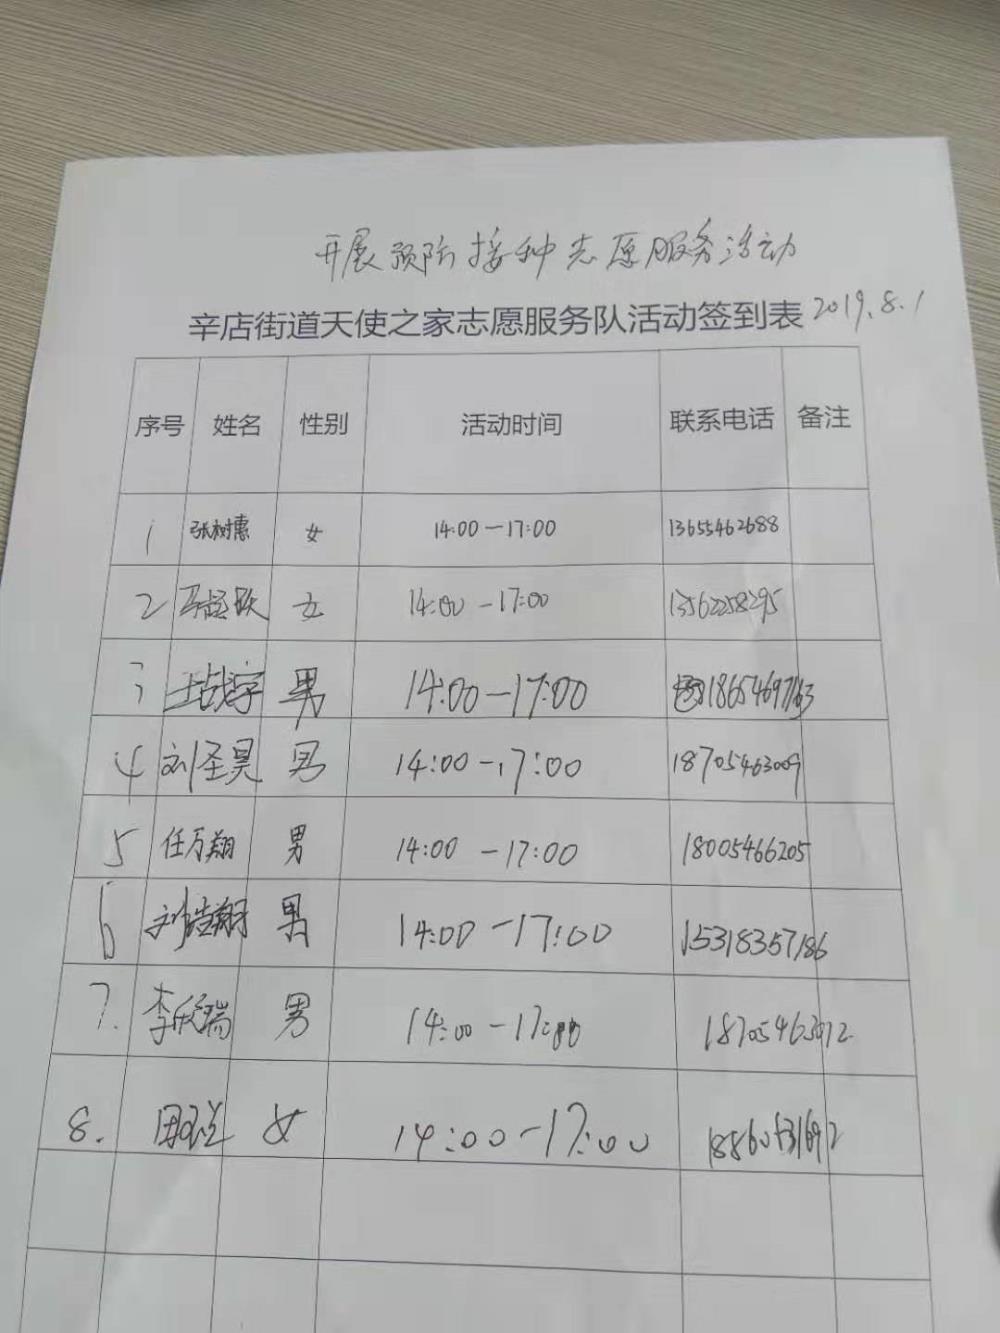 开展预防接种志愿服务活动
辛店街道天使之家志愿服务队活动签到表 2019.8.1
序号 姓名 性别 活动时间 联系电话 备注
1 张树惠 女 14:00—17:00 13655462688
2 女 14:00—17:00 13562258295
3 男 14:00—17:00 18654697163
4 刘圣昊 男 14:00—17:00 18705463009
5 任万翔 男 14:00—17:00 18005466205
6 刘浩翔 男 14:00—17:00 15318357186
7. 李欣瑞 男 14:00—17:00 18705463972
8. 女 14:00—17:00